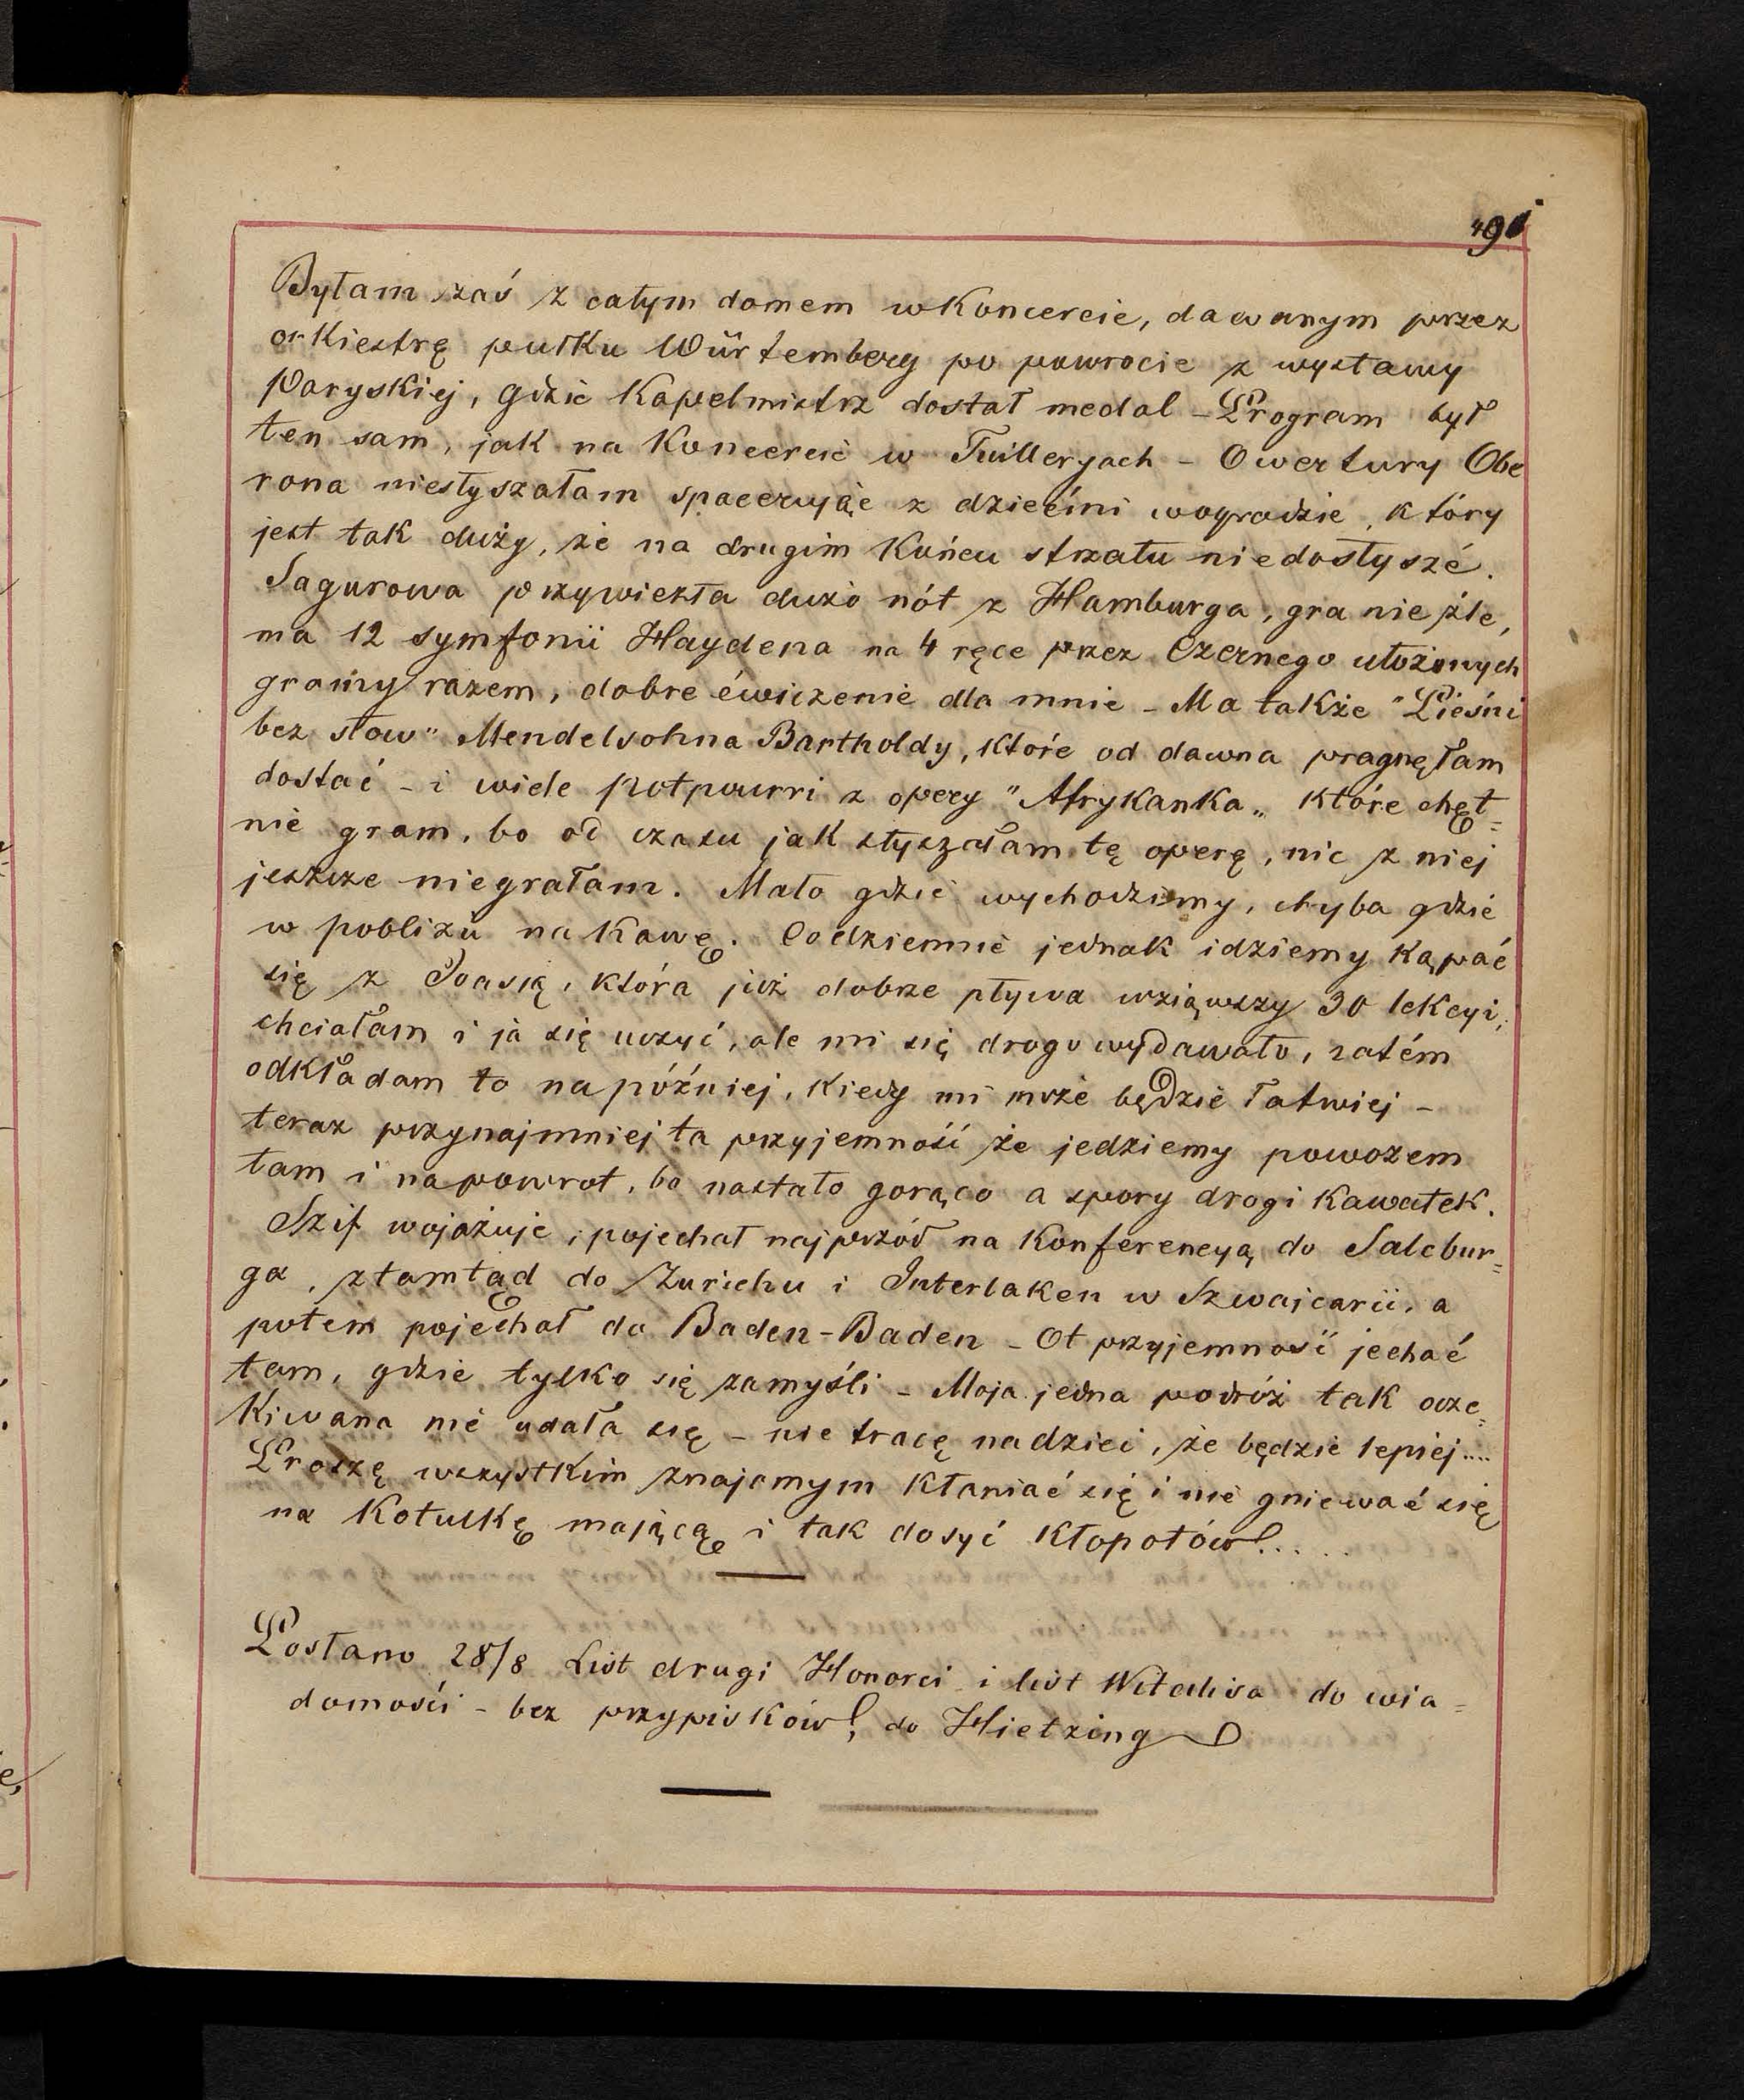 491
Byłam zaś z całym domem w Koncercie, dawanym przez
orkiestrę pułku Würtemberg po powrocie z wystawy
Paryskiej, gdzie Kapelmistrz dostał medal – Program był
ten sam, jak na Koncercie w Tuilleryach – Owertury Obe
rona niesłyszałam spacerując z dziećmi w ogrodzie, który
jest tak duży, że na drugim Końcu strzału niedosłyszé.
Sagurowa przywiezła dużo nót z Hamburga, gra nie źle,
ma 12 symfonii Haydena na 4 ręce przez Czernego ułożonych
gramy razem, dobre ćwiczenie dla mnie – Ma także "Pieśni
bez słow" Mendelsohna Bartholdy, które od dawna pragnęłam
dostać – i wiele potpourri z opery "Afrykanka" które chęt=
nie gram, bo od czasu jak słyszałam tę operę, nic z niej
jeszcze niegrałam. Mało gdzie wychodzimy, chyba gdzie
w pobliżu na Kawę. Codziennie jednak idziemy Kąpać
się z Joasią, która już dobrze pływa wziąwszy 30 lekcyi,
chciałam i ja się uczyć, ale mi się drogo wydawało, zatém
odkładam to na później, Kiedy mi może będzie łatwiej –
teraz przynajmniej ta przyjemność że jedziemy powozem
tam i napowrot, bo nastało gorąco a spory drogi Kawałek.
Szif wojażuje, pojechał najprzód na Konferencyą do Salcbur=
ga, ztamtąd do Zurichu i Interlaken w Szwajcarii, a
potem pojechał do Baden-Baden – Ot przyjemność jechać
tam, gdzie tylko się zamyśli – Moja jedna podróż tak ocze=
Kiwana nie udała się – nie tracę nadziei, że będzie lepiej....
Proszę wszystkim znajomym Kłaniać się i nie gniewać się
na Kotulkę mającą i tak dosyć Kłopotów!.....
Posłano 28/8 List drugi Honorci i list Witalisa do wia=
domości – bez przypisków! do Hietzing